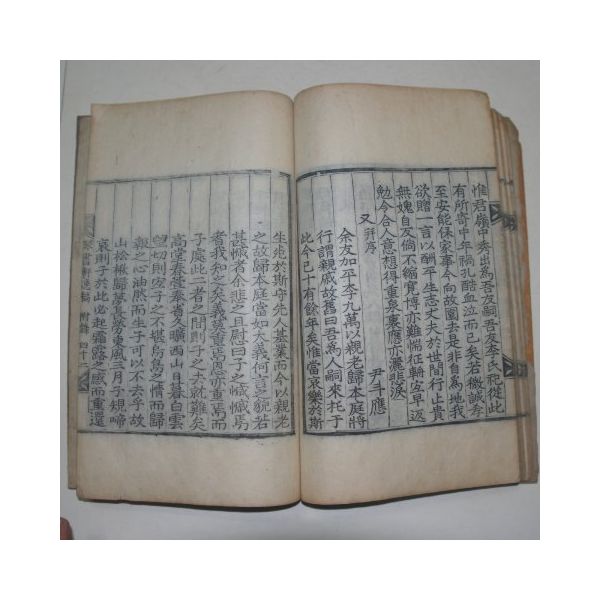 惟君嶺中秀出爲吾友嗣吾友李氏祀從此
有所寄中年禍孔酷血泣而已矣若微誠孝
至安能保家事今向故園去是非自爲地我
欲贈一言以酬平生志丈夫於世間行止貴
無媿自友倘不縮寬博亦難惴征轅宜早返
勉今合人意想得重來裏應亦灑悲淚
又 幷序 尹斗應
余友加平李九萬以親老歸本庭將
行謂親戚故舊曰吾爲人嗣來托于
此今已十有餘年矣惟當哀樂於斯
生死於斯守先人基業而今以親老
之故歸本庭當如大義何言之貌若
甚慽者余悲之且慰曰子之慽慽焉
者我知之矣義莫重焉恩亦重焉而
子處此二者之間則子之去就難矣
高堂春萱桑者久曠西山日暮白雲
望切則於子之不堪烏鳥之情而歸
報之心油然而生子可以不去乎故
山松楸歸夢眞勞東風三月子規啼
哀則子於此必起霜露之感而重還
軒遺稿 附錄 四十二